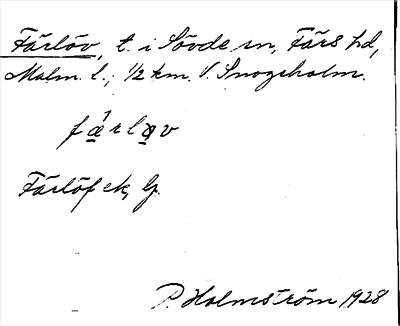 Färlöv, t. i Sövde sn, Färs hd,
Malm. l., 1/2 km. V. Snogeholm.
fǽrlav
Färlöf ek, Gj.
P. Holmström 1928